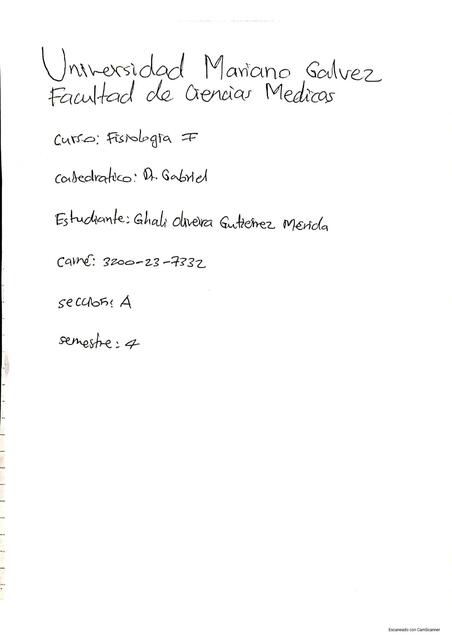 Universidad Mariano Galvez
Facultad de Ciencias Medicas
curso: Fisiologia I
catedratico: Dr. Gabriel
Estudiante: Ghali Oliveira Gutierrez Merida
carné: 3200-23-7332
seccion: A
semestre: 4
Escaneado con CamScanner